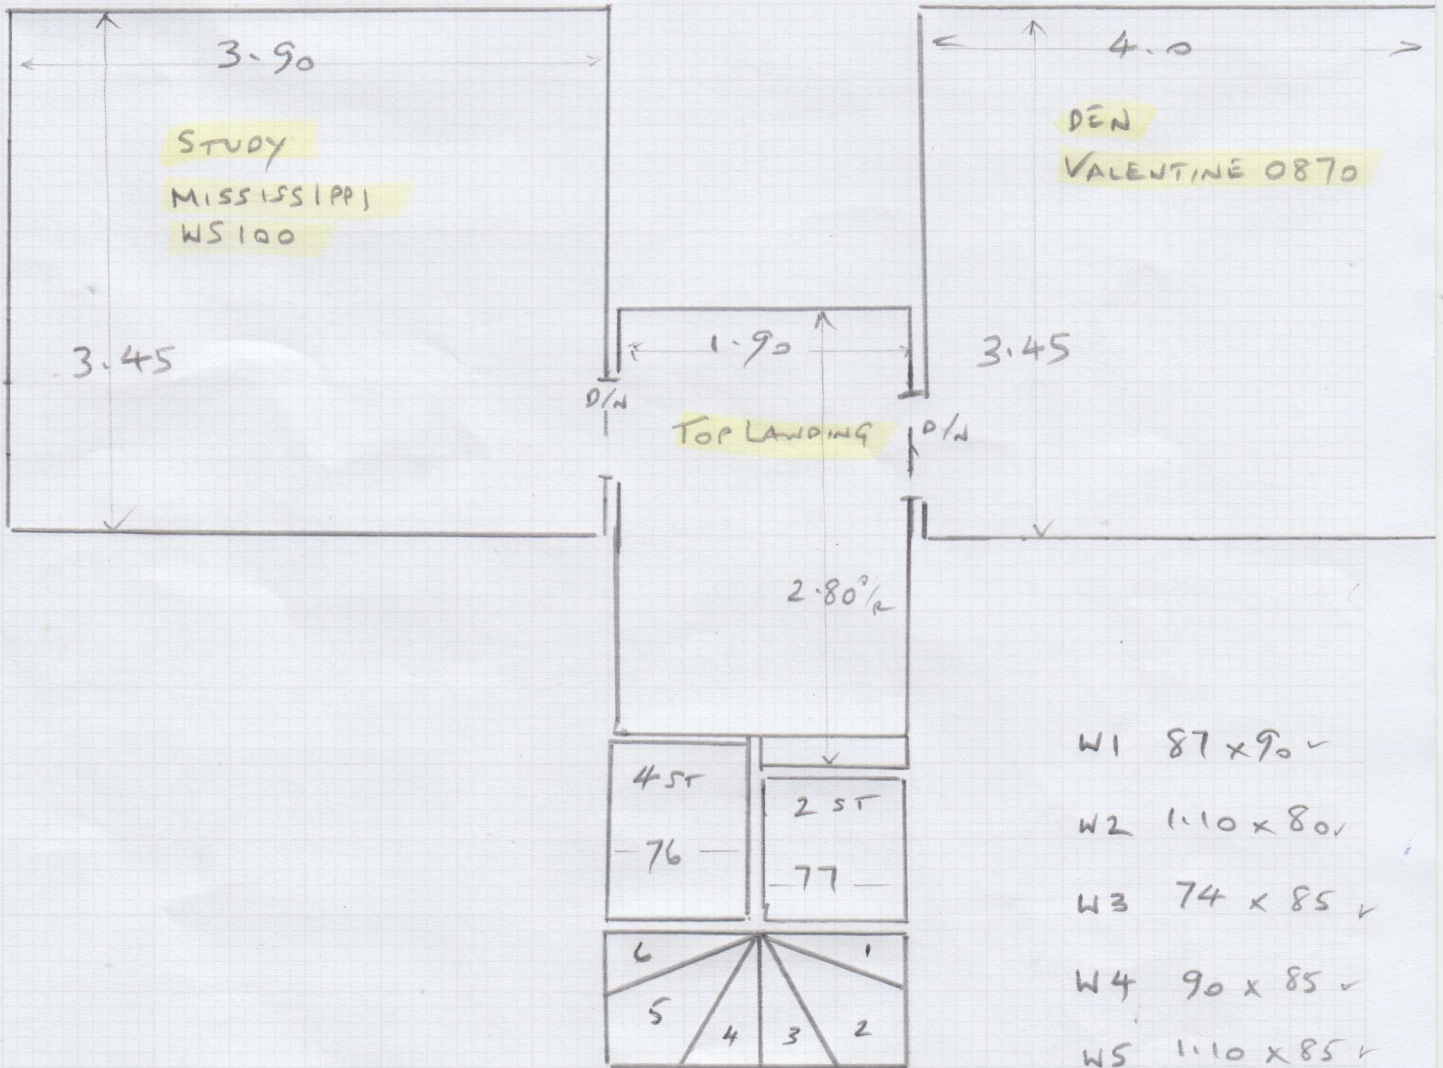 3.90
4.0
STUDY
MISSISSIPPI
WS100
DEN
VALENTINE 0870
3.45
1.90
3.45
D/N
TOP LANDING
D/N
2.80 O/R
4 ST
76
2 ST
77
6
5
4
3
2
1
W1 87 x 90 ✓
W2 1.10 x 80 ✓
W3 74 x 85 ✓
W4 90 x 85 ✓
W5 1.10 x 85 ✓